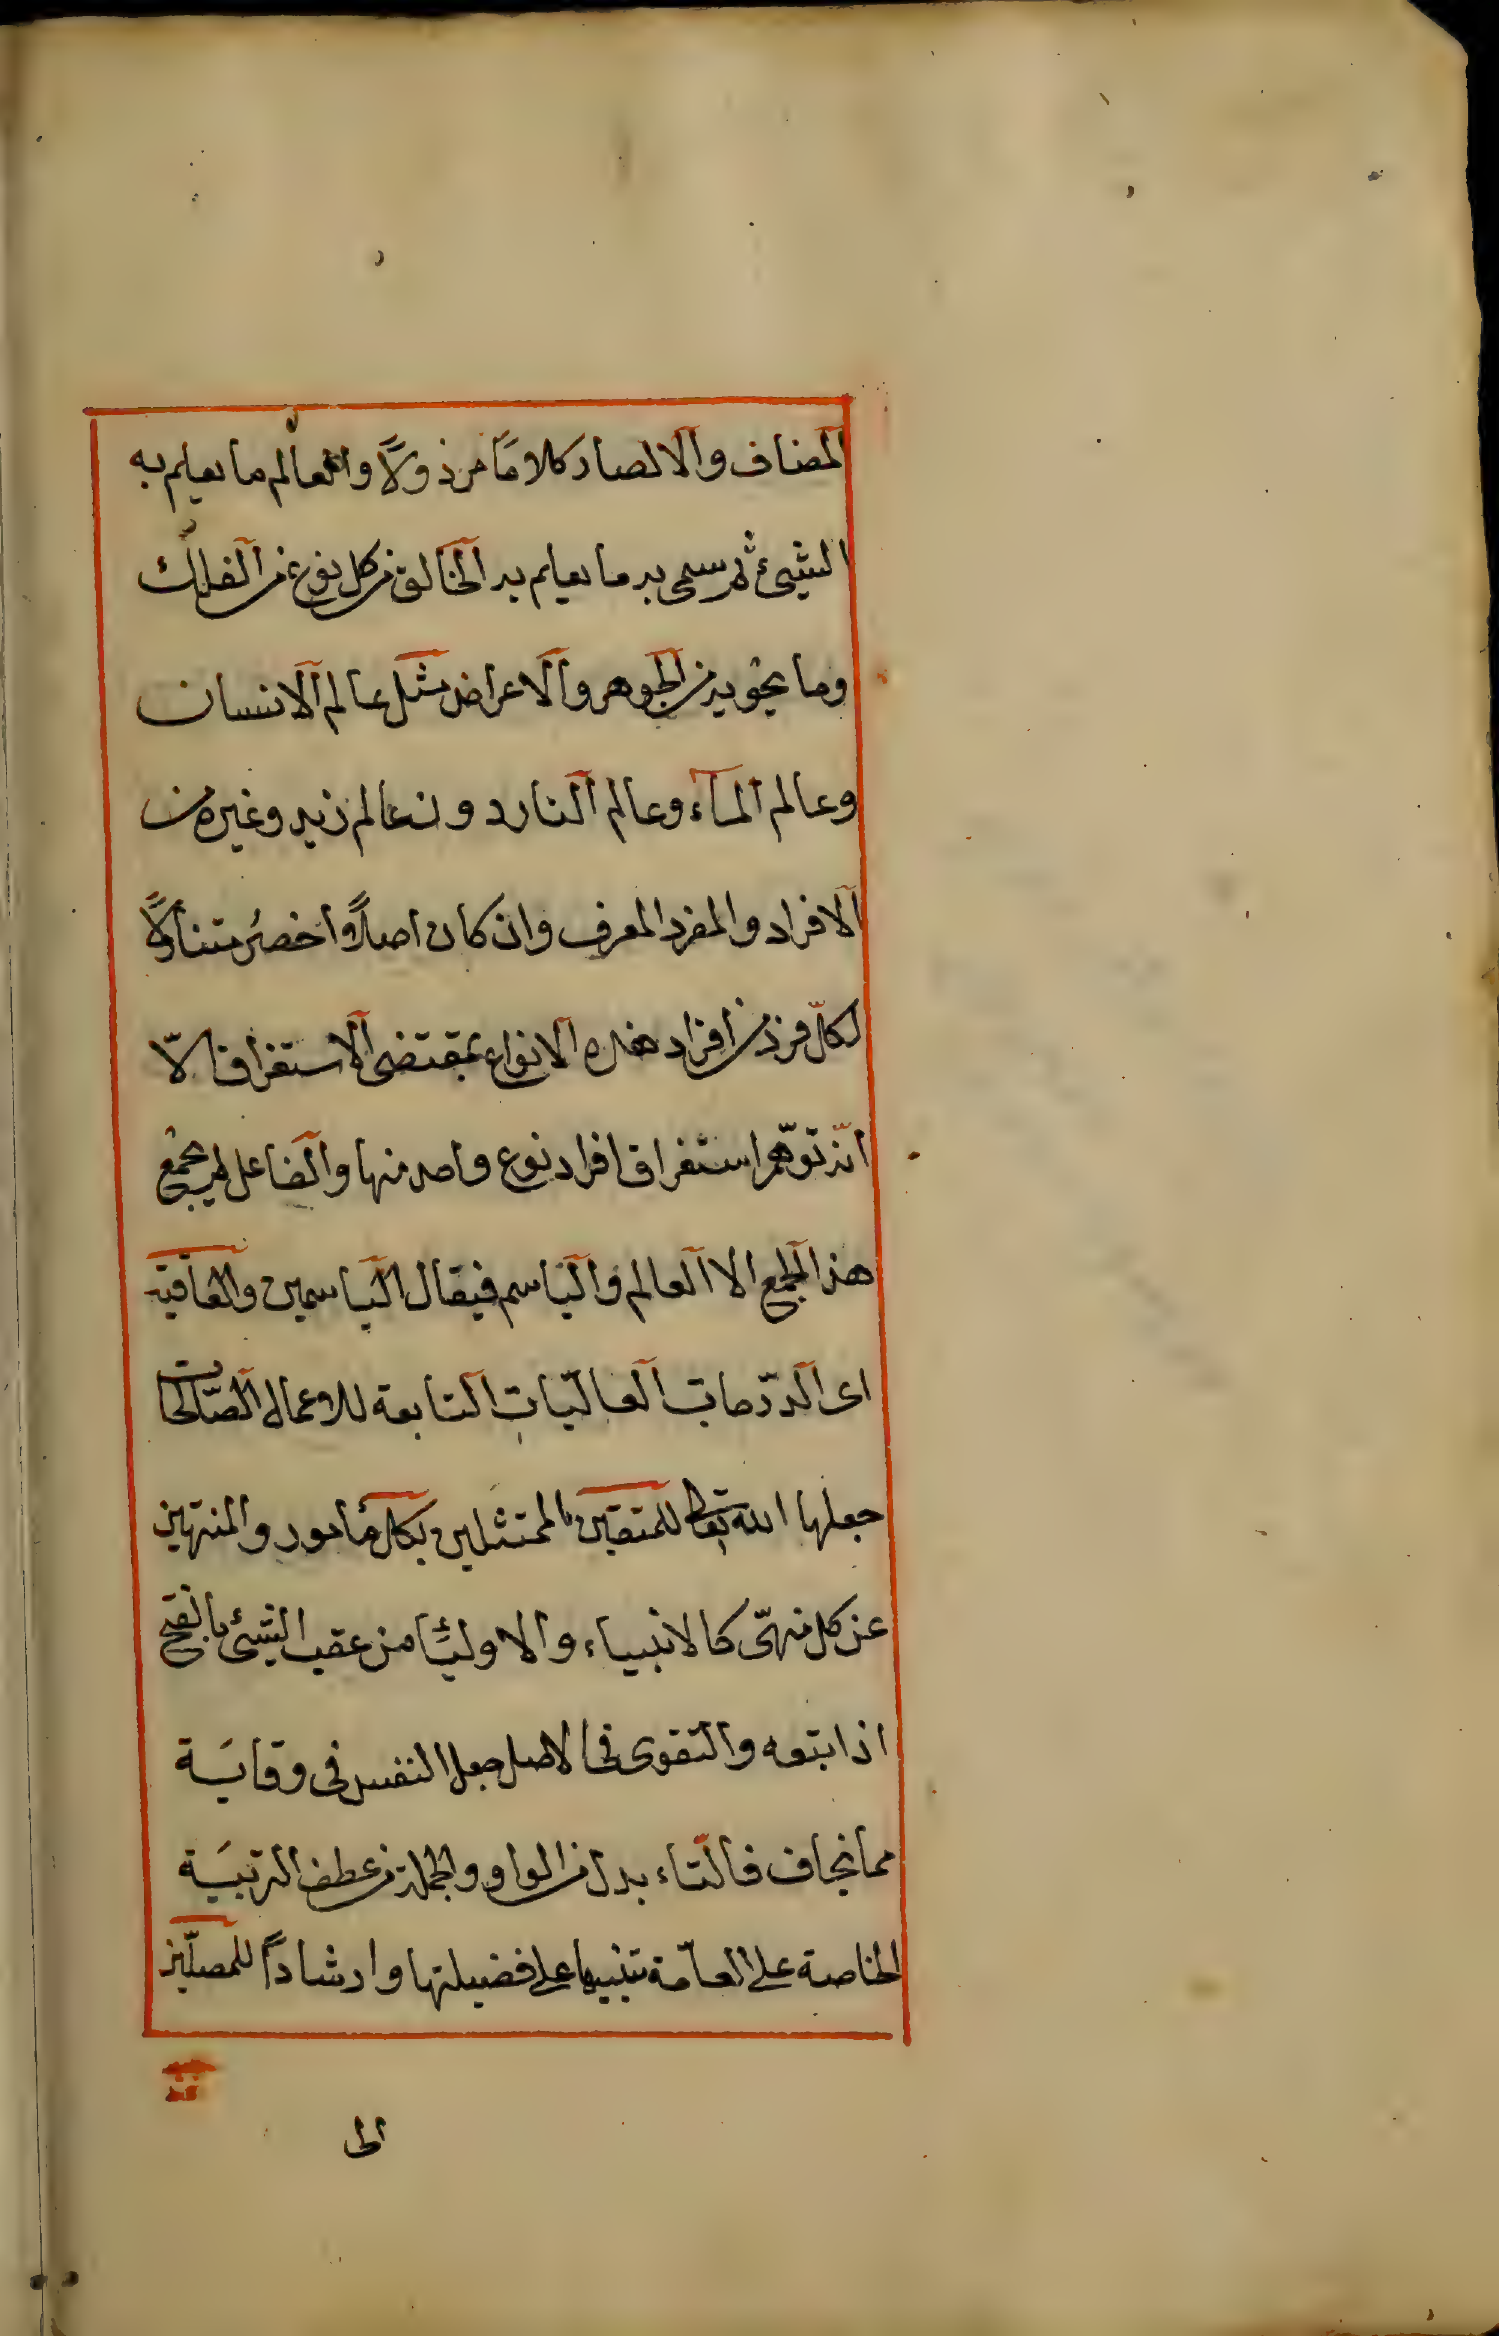 المضاف والا لصار كلامًا مرذولًا والعالم ما يعلم به
الشيئ ثم سمى به ما يعلم به الخالق من كل نوع من الفلك
وما يحويه من الجوهر والاعراض مثل عالم الانسان
وعالم المآء وعالم النار دون عالم زيد وغيره من
الافراد والمفرد المعرف وان كان اصلًا واخصر متناولًا
لكلّ فرد من افراد هذه الانواع بمقتضى الاستغراق الّا
انّه توهّم استغراق افراد نوع واحد منها والفاعل لم يجمع
هذا الجمع الا العالم والياسم فيقال الياسمين والعاقبة
اى الدّرجات العاليات التابعة للاعمال الصّالحات
جعلها الله تعالى للمتقين الممتثلين بكل مأمور والمنتهين
عن كل منهىّ كالانبياء والاوليآء من عقب الشيئ بالفتح
اذا تبعه والتقوى فى الاصل جعل النفس فى وقاية
مما يخاف فالتّاء بدل من الواو والجملة من عطف التربية
الخاصة على العامّة تنبيها على فضيلتها وارشادًا للمصلّين
الى